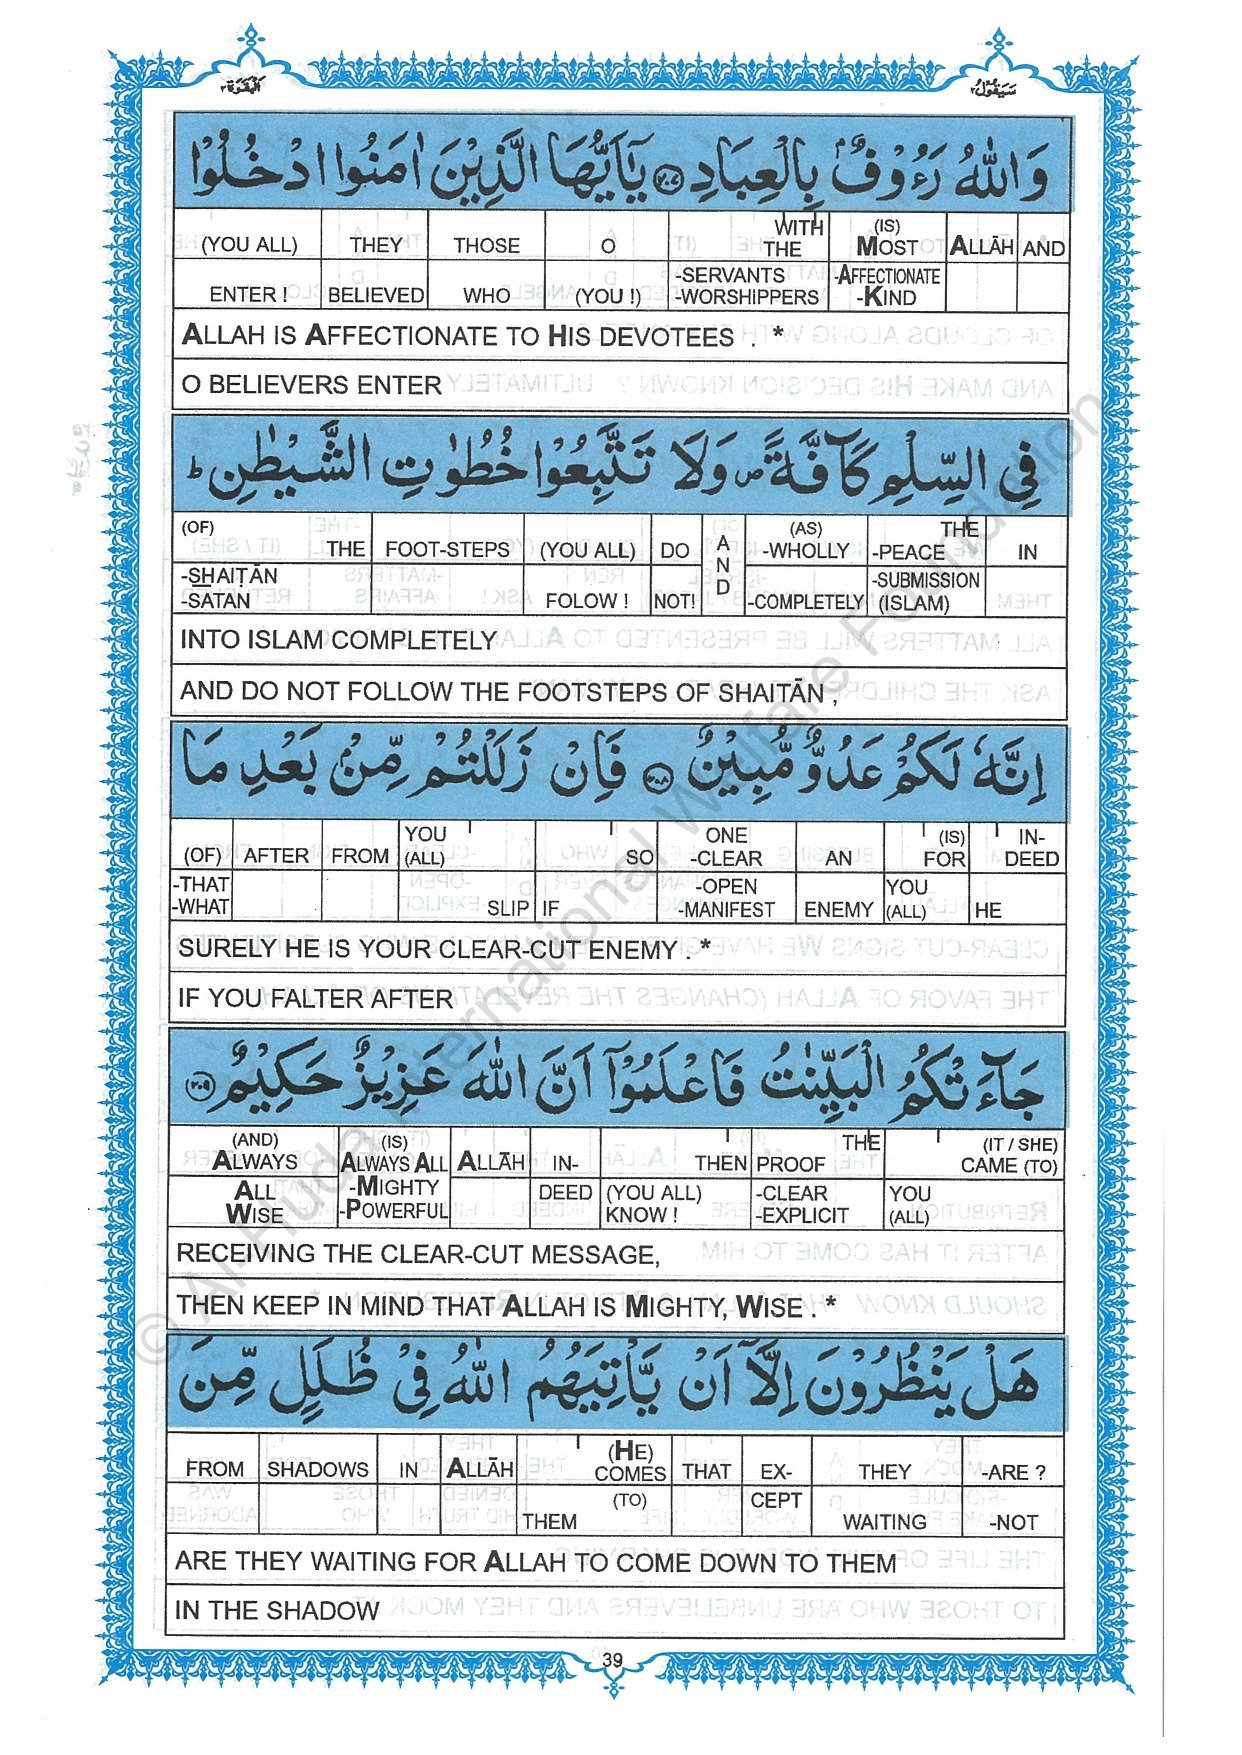 البقرة ٢
سَيَقُوْلُ ٢
وَاللّٰهُ رَءُوْفٌۢ بِالْعِبَادِ ﴿٢٠٧﴾ يٰۤاَيُّهَا الَّذِيْنَ اٰمَنُوا ادْخُلُوْا
(YOU ALL) THEY THOSE O WITH THE (IS) MOST ALLĀH AND
ENTER ! BELIEVED WHO (YOU !) -SERVANTS -WORSHIPPERS -AFFECTIONATE -KIND
ALLAH IS AFFECTIONATE TO HIS DEVOTEES . *
O BELIEVERS ENTER
فِي السِّلْمِ كَآفَّةً ۪ وَلَا تَتَّبِعُوْا خُطُوٰتِ الشَّيْطٰنِ ؕ
(OF) THE FOOT-STEPS (YOU ALL) DO AND (AS) -WHOLLY THE -PEACE IN
-SHAIṬĀN -SATAN FOLOW ! NOT! -COMPLETELY -SUBMISSION (ISLAM)
INTO ISLAM COMPLETELY
AND DO NOT FOLLOW THE FOOTSTEPS OF SHAITĀN ,
اِنَّهٗ لَكُمْ عَدُوٌّ مُّبِيْنٌ ﴿٢٠٨﴾ فَاِنْ زَلَلْتُمْ مِّنْۢ بَعْدِ مَا
(OF) AFTER FROM YOU (ALL) SO ONE -CLEAR AN (IS) FOR IN-DEED
-THAT -WHAT SLIP IF -OPEN -MANIFEST ENEMY YOU (ALL) HE
SURELY HE IS YOUR CLEAR-CUT ENEMY . *
IF YOU FALTER AFTER
جَآءَتْكُمُ الْبَيِّنٰتُ فَاعْلَمُوْۤا اَنَّ اللّٰهَ عَزِيْزٌ حَكِيْمٌ ﴿٢٠٩﴾
(AND) ALWAYS (IS) ALWAYS ALL ALLĀH IN- THEN THE PROOF (IT / SHE) CAME (TO)
ALL WISE -MIGHTY -POWERFUL DEED (YOU ALL) KNOW ! -CLEAR -EXPLICIT YOU (ALL)
RECEIVING THE CLEAR-CUT MESSAGE,
THEN KEEP IN MIND THAT ALLAH IS MIGHTY, WISE . *
هَلْ يَنْظُرُوْنَ اِلَّاۤ اَنْ يَّاْتِيَهُمُ اللّٰهُ فِيْ ظُلَلٍ مِّنَ
FROM SHADOWS IN ALLĀH (HE) COMES THAT EX- THEY -ARE ?
THEM (TO) CEPT WAITING -NOT
ARE THEY WAITING FOR ALLAH TO COME DOWN TO THEM
IN THE SHADOW
39
© Al-Huda International Welfare Foundation